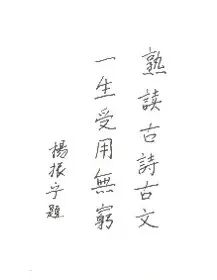 熟讀古詩古文
一生受用無窮
楊振宁題